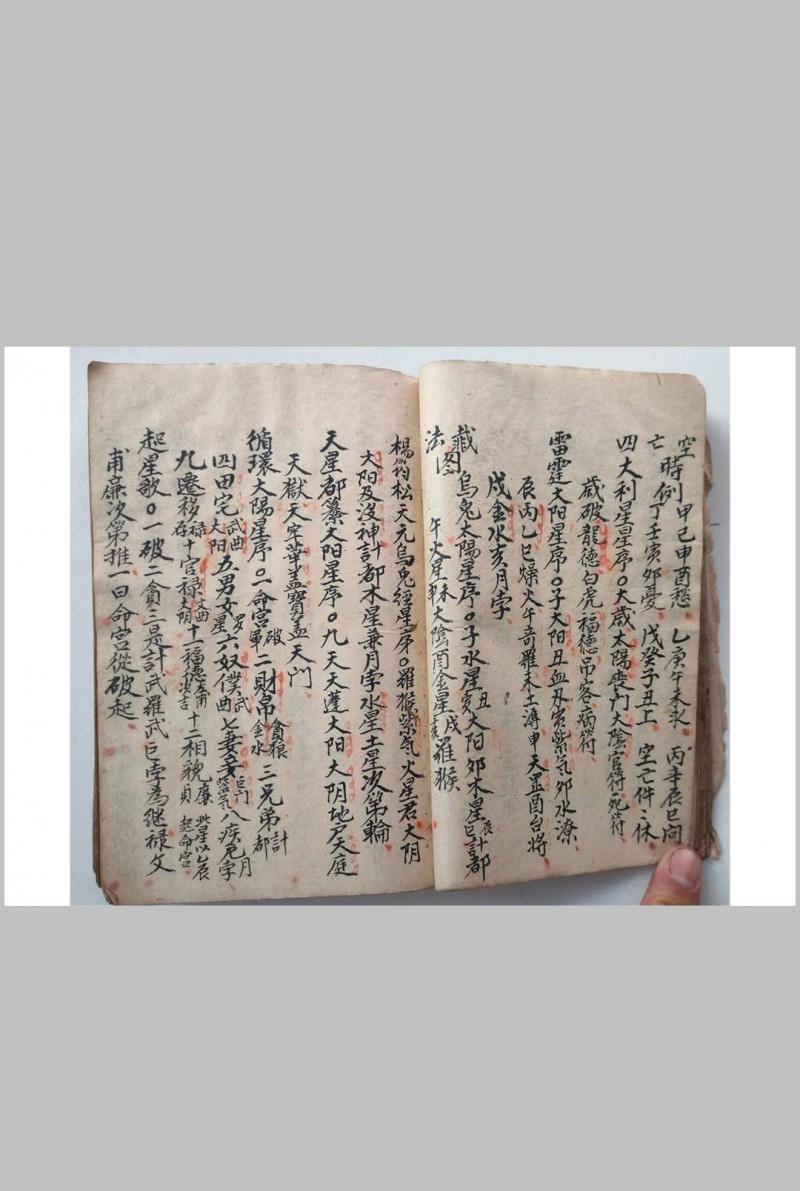 空 時例 甲己申酉愁 乙庚午未求 丙辛辰巳问
亡 丁壬寅夘憂 戊癸子丑上 空亡件〻休
四大利星星序○大歳太陽喪门大陰官符死符
歳破龍德白虎福德吊客病符
雷霆大阳星序○子大阳丑血刃寅紫气夘水潦
辰丙乙巳燥火午奇羅未土溽申天罡酉台将
戌金水亥月孛
藏 烏鬼太陽星序○子水星丑寅大阳夘木星辰巳計都
法图 午火星未申大陰酉金星戌亥羅猴
楊筠松天元乌兎经星序○羅猴紫气火星君大阴
太阳及没神計都木星兼月孛水星土星次第輪
天星都纂大阳星序○九天天蓬大阳大阴地户天庭
天獄天牢華盖寳盖天门
循環太陽星序○一命宫破軍二財帛貪狼金水三兄弟計都
四田宅武曲大阳五男女羅星六奴僕武曲七妻妾巨门紫气八疾厄月孛
九遷移禄存十官禄文曲大阴十一福德左甫十二相貌廉貞 此星以辰起命宫
起星歌○一破二貪三是計武羅武巨孛為继禄文
甫廉次第推一曰命宫從破起